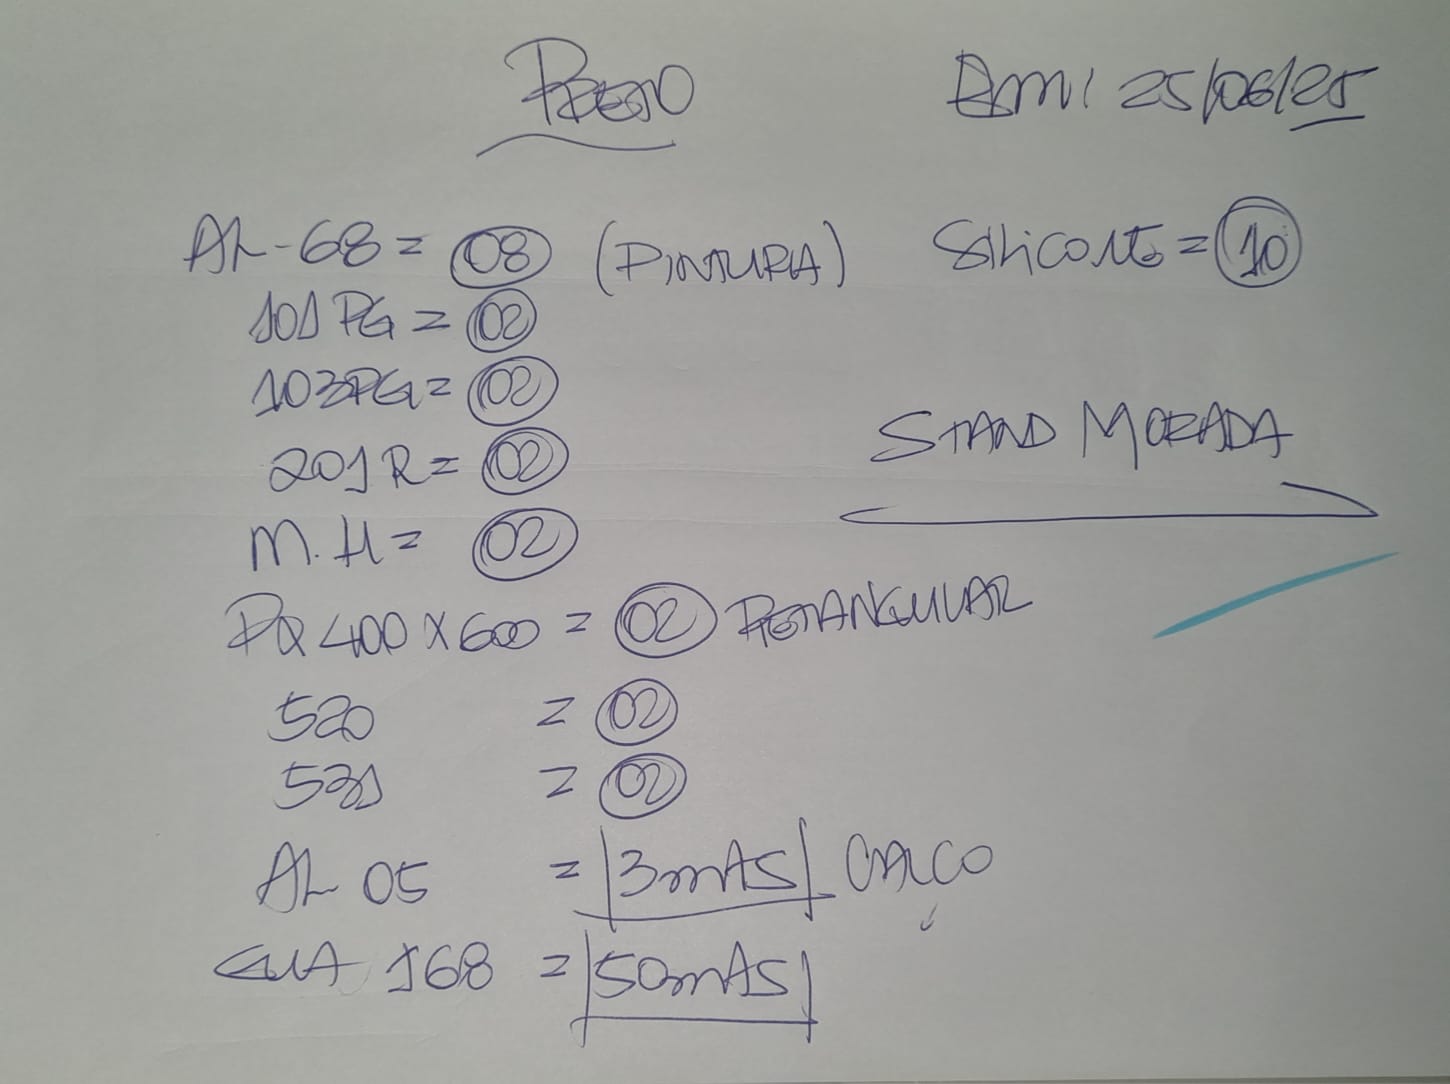 PRETO
Em: 25/06/25
AL-68 = 08 (PINTURA) Silicone = 10
101 PG = 02
103 PG = 02
201 R = 02
STAND MORADA
M.H = 02
PQ 400 X 600 = 02 RETANGULAR
520 = 02
531 = 02
AL 05 = 3 mts CALÇO
GUA 168 = 50 mts